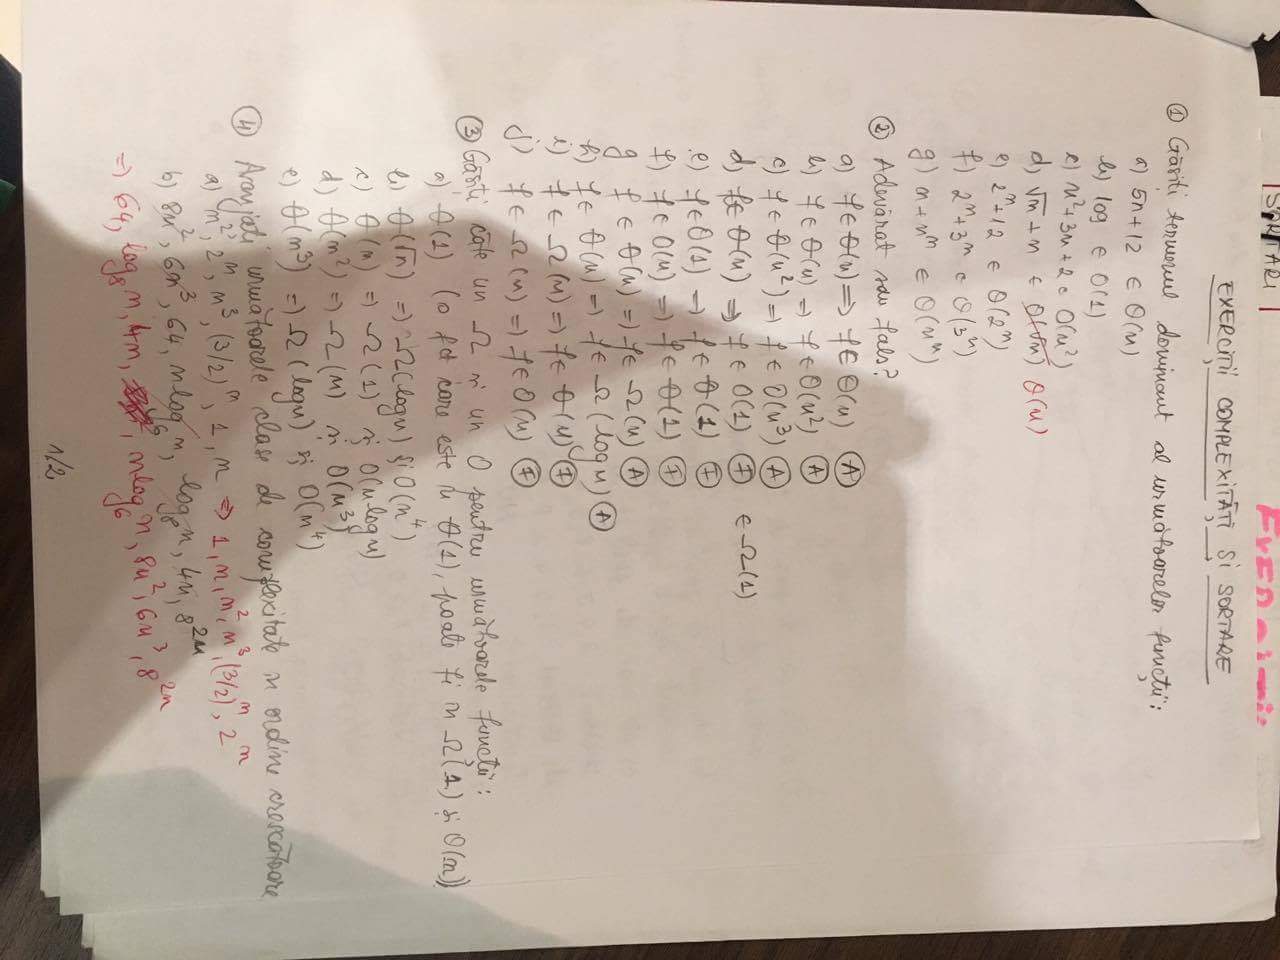 SORTARI
EXERCITII COMPLEXITĂȚI ȘI SORTARE
① Găsiți termenul dominant al următoarelor funcții:
a) 5n+12 ∈ Θ(n)
b) log ∈ O(1)
c) n²+3n+2 ∈ O(n²)
d) √n+n ∈ Θ(n)
e) 2ⁿ+12 ∈ Θ(2ⁿ)
f) 2ⁿ+3ⁿ ∈ Θ(3ⁿ)
g) n+nⁿ ∈ Θ(nⁿ)
② Adevărat sau fals?
a) f∈Θ(n) => f∈O(n) Ⓐ
b) f∈Θ(n) => f∈O(n²) Ⓐ
c) f∈Θ(n²) => f∈O(n³) Ⓐ
d) f∈Θ(n) => f∈O(1) Ⓕ ∈Ω(1)
e) f∈O(1) => f∈Θ(1) Ⓕ
f) f∈O(n) => f∈Θ(1) Ⓕ
g f∈Θ(n) => f∈Ω(n) Ⓐ
h) f∈Θ(n) => f∈Ω(log n) Ⓐ
i) f∈Ω(n) => f∈Θ(n) Ⓕ
j) f∈Ω(n) => f∈O(n) Ⓕ
③ Găsiți câte un Ω și un O pentru următoarele funcții:
a) Θ(1) (o fct care este în Θ(1), poate fi în Ω(1) și O(n))
b) Θ(√n) => Ω(log n) și O(n⁴)
c) Θ(n) => Ω(1) și O(n log n)
d) Θ(n²) => Ω(n) și O(n³)
e) Θ(n³) => Ω(log n) și O(n⁴)
④ Aranjați următoarele clase de complexitate în ordine crescătoare
a) n², 2ⁿ, n³, (3/2)ⁿ, 1, n => 1, n, n², n³, (3/2)ⁿ, 2ⁿ
b) 8n², 6n³, 64, n log₆ n, log₈ n, 4n, 8²ⁿ
=> 64, log₈ n, 4n, n log₆ n, 8n², 6n³, 8²ⁿ
1/2